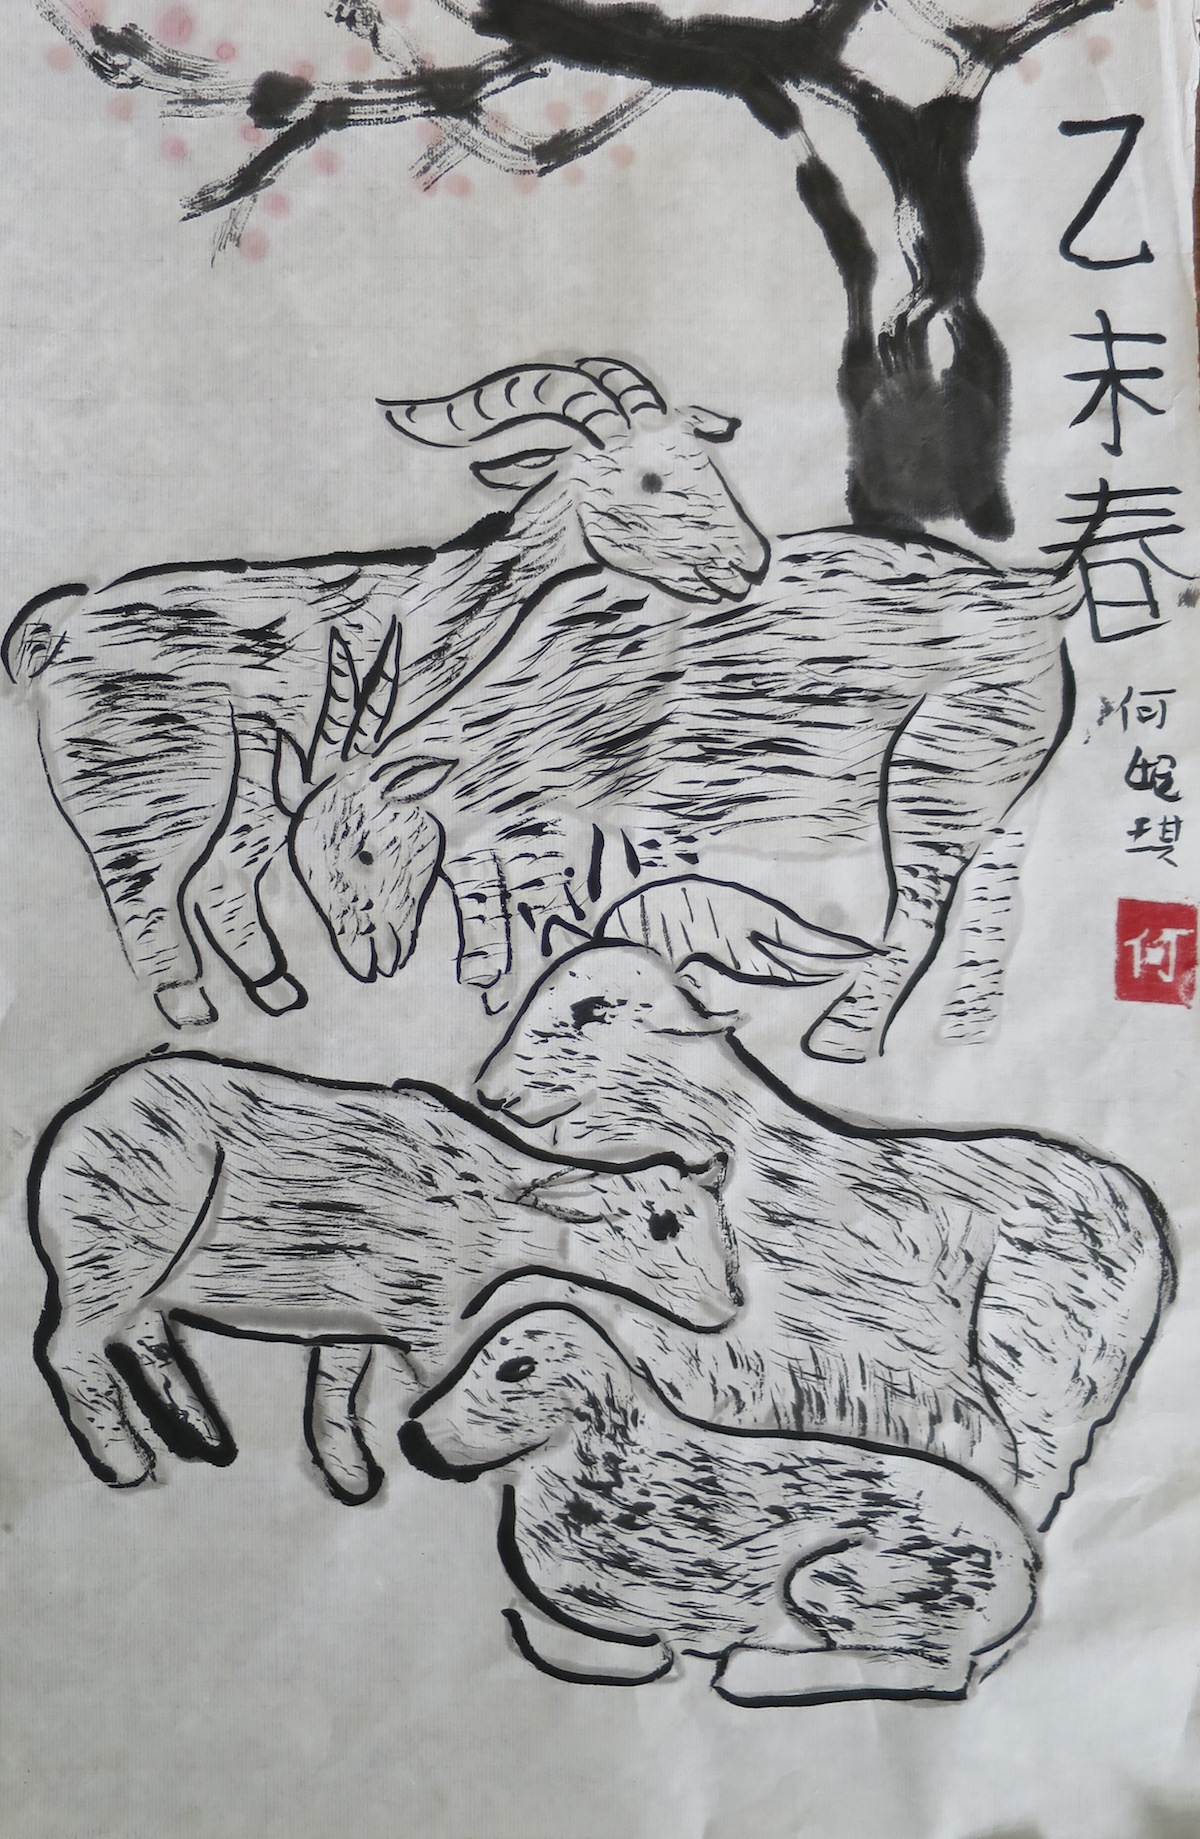 乙未春
何妮琪
何